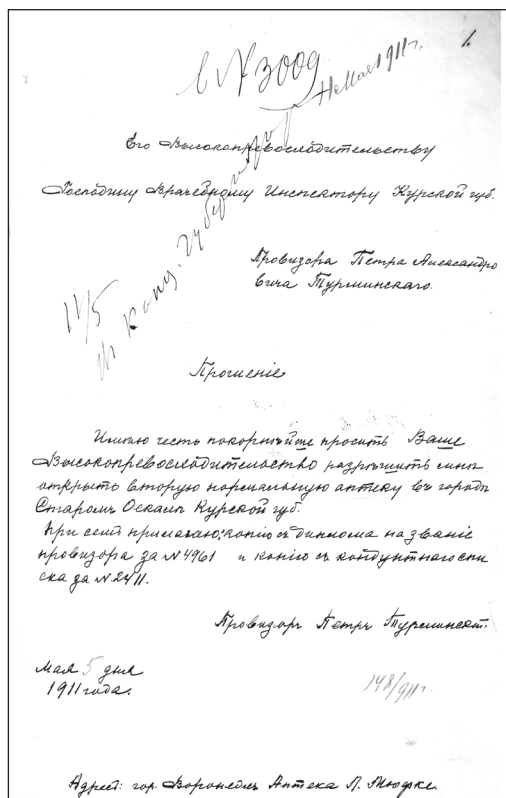 1.
№ 3009
11 Мая 1911 г.
Его Высокопревосходительству
Господину Врачебному Инспектору Курской губ.
Провизора Петра Александро
вича Турминскаго.
11/5
Прошеніе
Имѣю честь покорнѣйше просить Ваше
Высокопревосходительство разрѣшить мнѣ
открыть вторую нормальную аптеку въ городѣ
Старомъ Осколѣ Курской губ.
При семъ прилагаю: копію съ диплома на званіе
провизора за № 4961 и копію съ кондуитнаго спи
ска за № 2411.
Провизоръ Петръ Турминскій.
Мая 5 дня
1911 года.
148/911 г.
Адресъ: гор. Воронежъ Аптека Л. Мюфке.